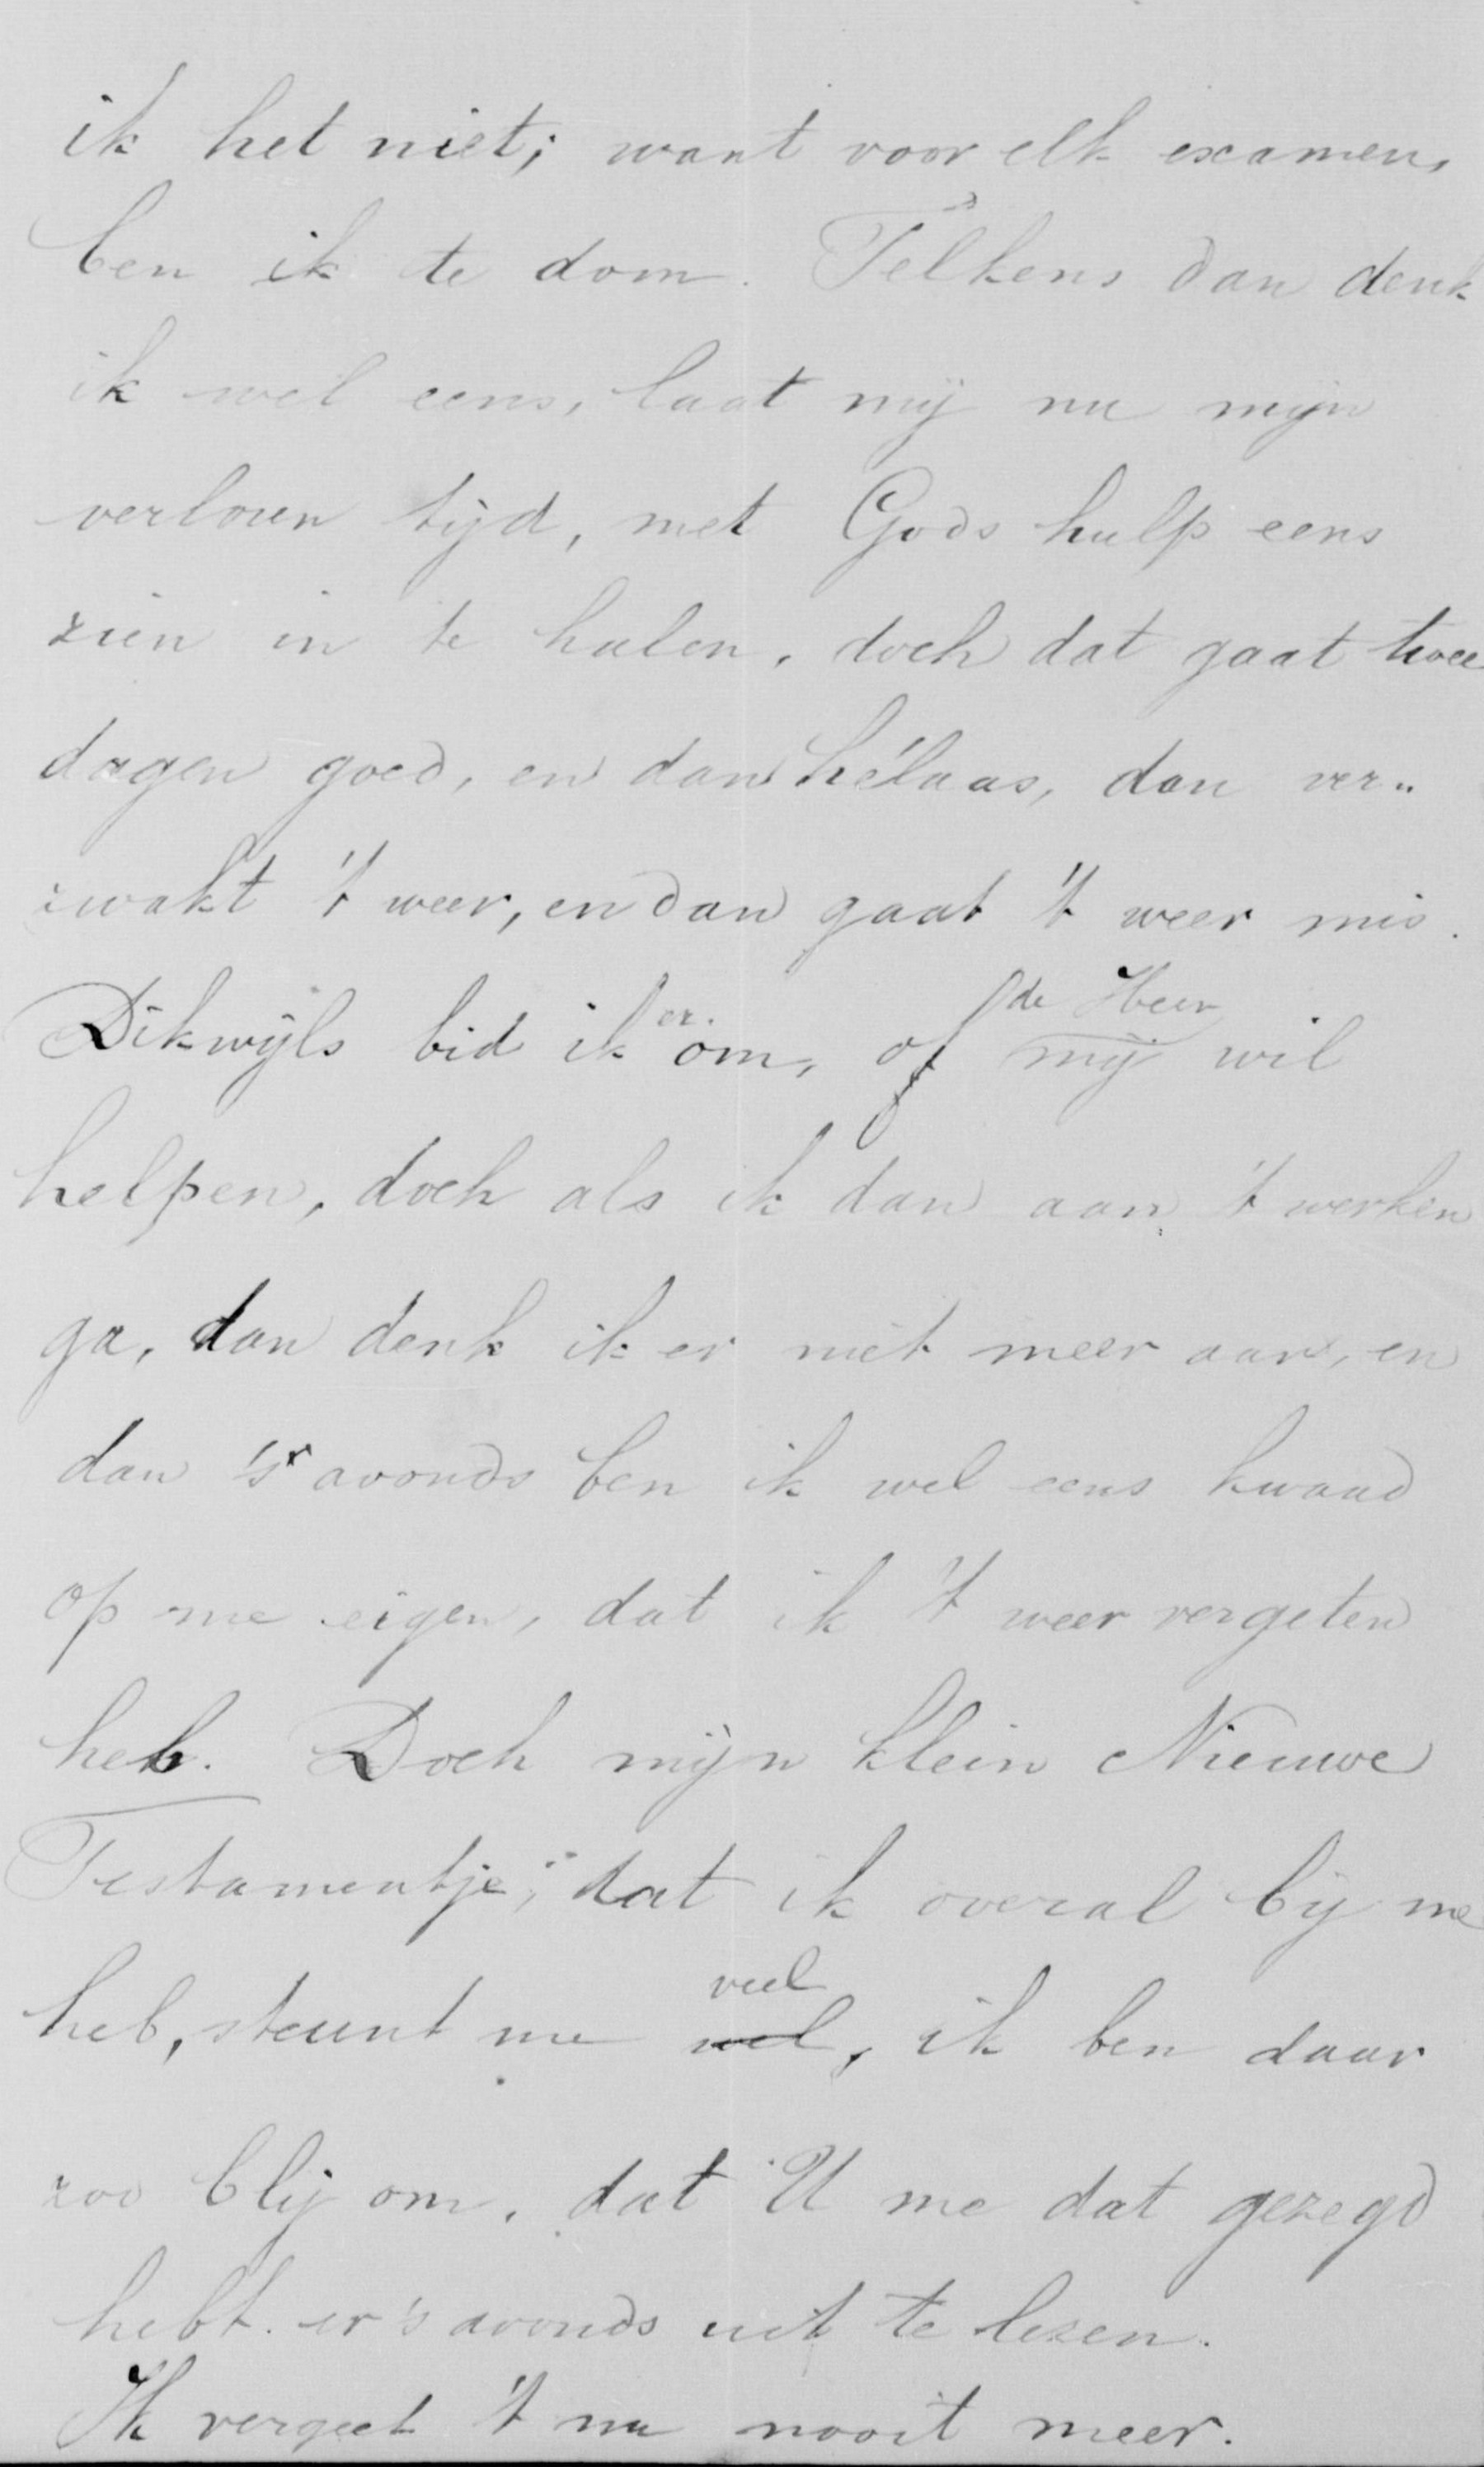 ik het niet; want voor elk examen,
ben ik te dom. Telkens dan denk
ik wel eens, laat mij nu mijn
verloren tijd, met Gods hulp eens
zien in te halen, doch dat gaat twee
dagen goed, en dan hélaas, dan ver„
zwakt 't weer, en dan gaat 't weer mis.
de Heer
Dikwijls bid ik er om, of mij wil
helpen, doch als ik dan aan 't werken
ga, dan denk ik er niet meer aan, en
dan 's avonds ben ik wel eens kwaad
op me eigen, dat ik 't weer vergeten
heb. Doch mijn klein Nieuwe
Testamentje, dat ik overal bij me
veel
heb, steunt me wel, ik ben daar
zoo blij om, dat U me dat gezegd
hebt. er 's avonds uit te lezen.
Ik vergeet 't nu nooit meer.